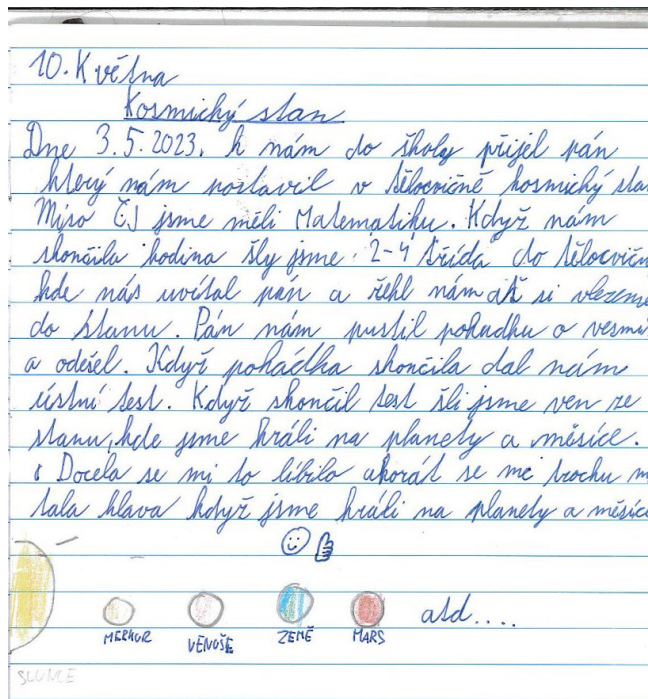 10. Května
Kosmický stan
Dne 3.5.2023. k nám do školy přijel pán
který nám postavil v tělocvičně kosmický stan
Míso ČJ jsme měli Matematiku. Když nám
skončila hodina šly jsme 2-4 třída do tělocvičn
kde nás uvítal pán a řekl nám ať si vlezeme
do stanu. Pán nám pustil pohadku o vesmí
a odešel. Když pohádka skončila dal nám
ústní test. Když skončil test šli jsme ven ze
stanu, kde jsme hráli na planety a měsíce.
Docela se mi to líbilo akorát se mi trochu mo
tala hlava když jsme hráli na planety a měsíce
MERKUR VENUŠE ZEMĚ MARS atd....
SLUNCE